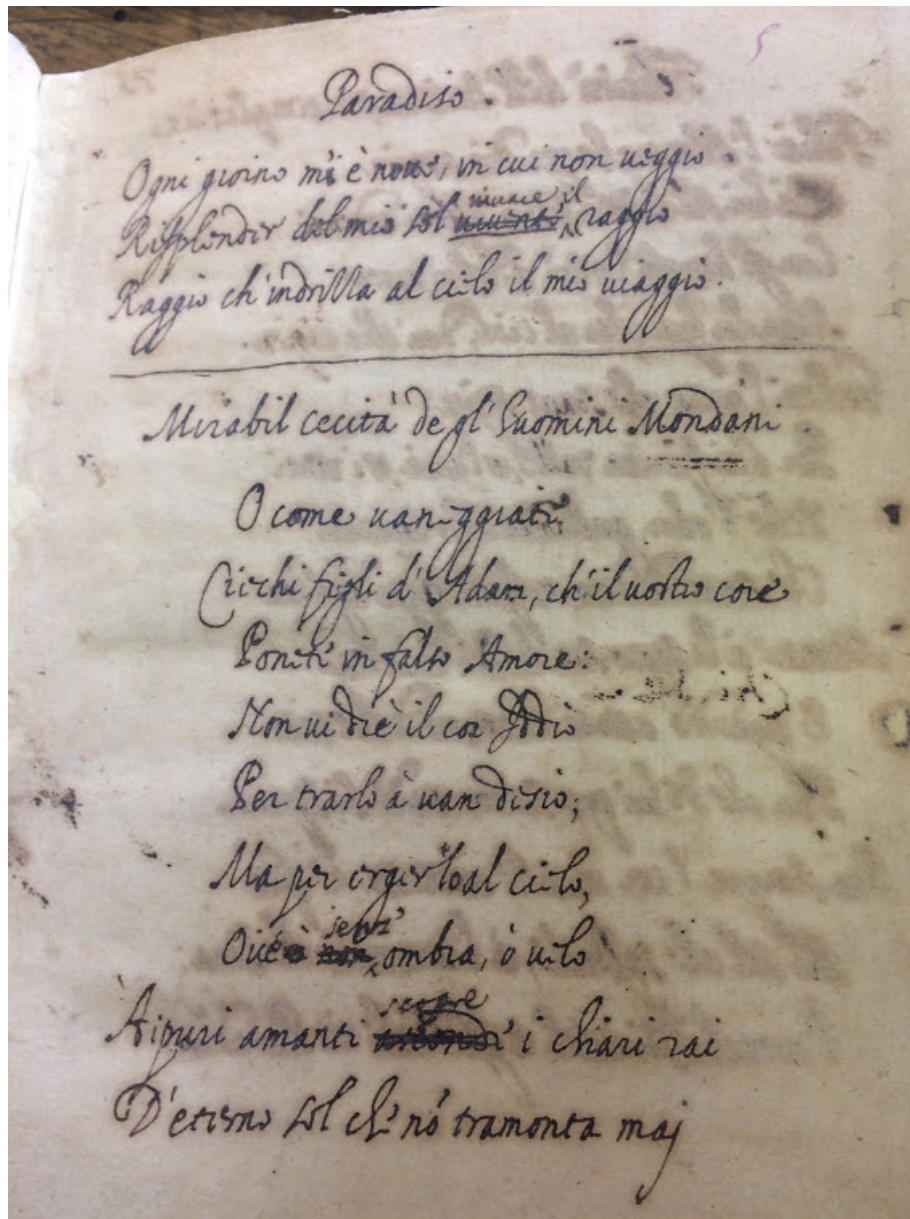 5
Paradiso.
Ogni giorno mi è notte, in cui non ueggio
Risplender del mio Sol uiuente uiuace il raggio
Raggio ch'indrizza al cielo il mio uiaggio.
Mirabil cecità degl'Huomini Mondani.
O come uaneggiate
Ciechi figli d'Adam, ch'il uostro core
Ponete in falso Amore:
Non ui diè il cor Iddio
Per trarlo à uan disio;
Ma per ergerlo al cielo,
Oue senz' ombra, ò uelo
Ai puri amanti scopre i chiari rai
D'eterno Sol che nó tramonta maj